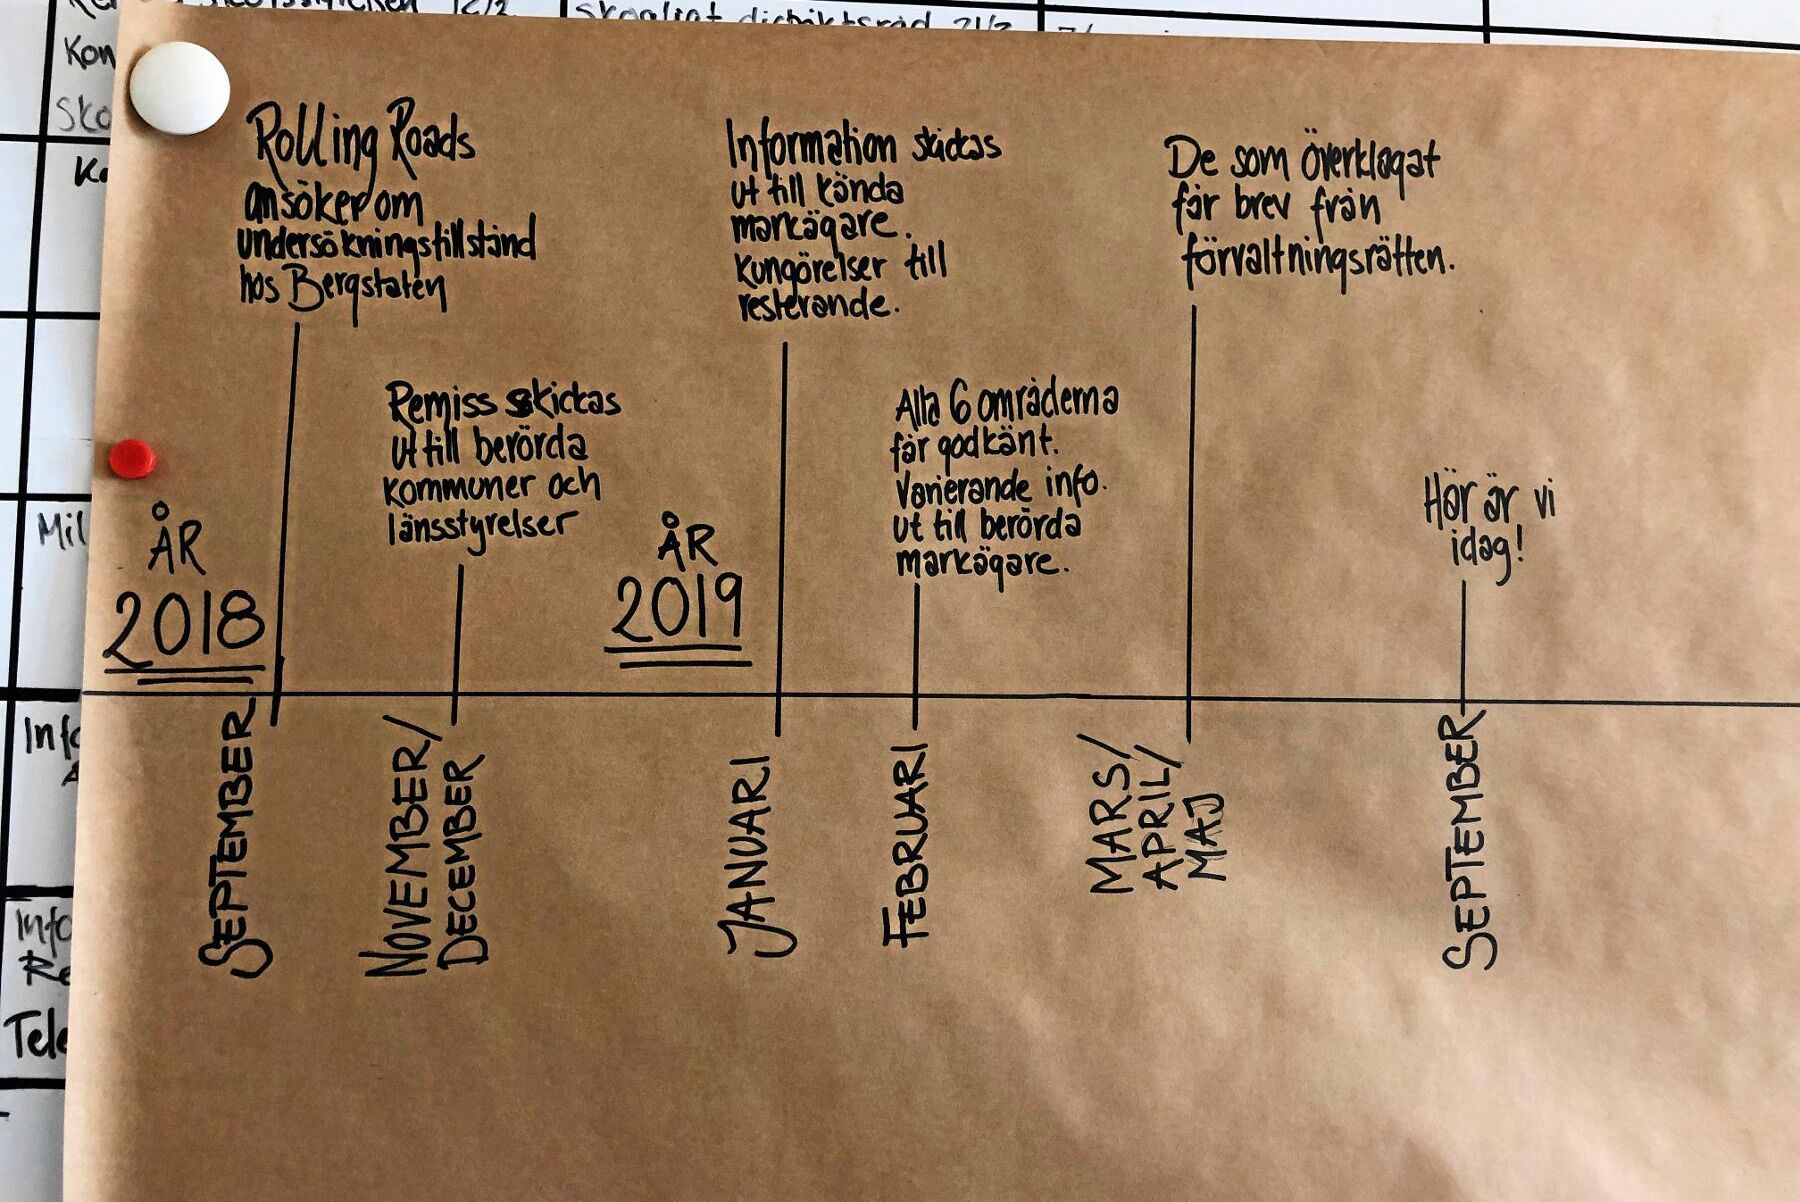 12/2
Skogligt distriktsråd 21/2
Kon
Sko
Ke
Mil
Info
Info
Re
Tele
Rolling Roads
ansöker om
undersökningstillstånd
hos Bergstaten
Remiss skickas
ut till berörda
kommuner och
länsstyrelser
Information skickas
ut till kända
markägare.
Kungörelser till
resterande.
Alla 6 områderna
får godkänt.
Varierande info.
ut till berörda
markägare.
De som överklagat
får brev från
förvaltningsrätten.
Här är vi
idag!
ÅR
2018
ÅR
2019
SEPTEMBER
NOVEMBER/
DECEMBER
JANUARI
FEBRUARI
MARS/
APRIL/
MAJ
SEPTEMBER